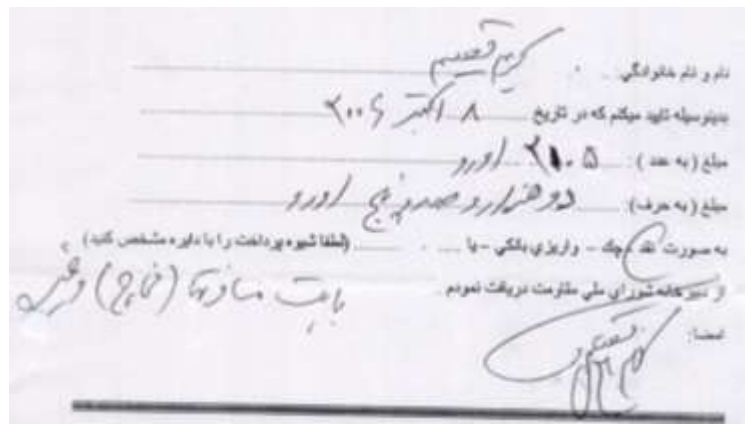 نام و نام خانوادگی: کریم قصیم
بدینوسیله تایید میکنم که در تاریخ ۸ اکتبر ۲۰۰۶
مبلغ (به عدد): ۲۱۰۵ اورو
مبلغ (به حرف) دو هزار و صد و پنج اورو
به صورت نقد - چک - واریزی بانکی - یا ........ (لطفا شیوه پرداخت را با دایره مشخص کنید)
از دبیرخانه شورای ملی مقاومت دریافت نمودم بابت مسافرتها (خارج)
امضا: